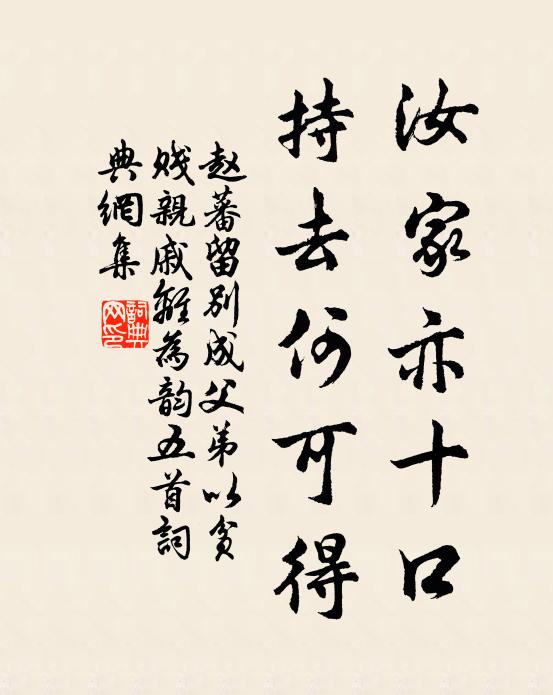 汝家亦十口
持去何可得
赵蕃留别成父弟以贫
贱親戚離為韵五首詞
典網集
詞典网印